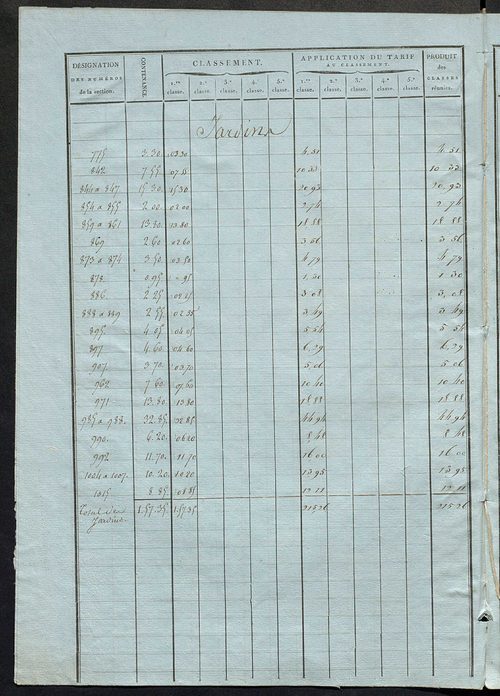 DÉSIGNATION DES NUMÉROS de la section. CONTENANCE. CLASSEMENT. APPLICATION DU TARIF AU CLASSEMENT. PRODUIT des CLASSES réunies.
1.re classe. 2.e classe. 3.e classe. 4.e classe. 5.e classe. 1.re classe. 2.e classe. 3.e classe. 4.e classe. 5.e classe.
Jardins
775 3.30 03.30 4.51 4.51
842 7.55 07.55 10.33 10.33
844 a 847 15.30 15.30 20.93 20.93
854 a 855 2.00 02.00 2.74 2.74
859 a 861 13.80 13.80 18.88 18.88
869 2.60 02.60 3.56 3.56
873 a 874 3.50 03.50 4.79 4.79
878 0.95 0.95 1.30 1.30
886 2.25 02.25 3.08 3.08
888 a 889 2.55 02.55 3.49 3.49
895 4.05 04.05 5.54 5.54
897 4.60 04.60 6.29 6.29
907 3.70 03.70 5.06 5.06
962 7.60 07.60 10.40 10.40
971 13.80 13.80 18.88 18.88
985 a 988 32.85 32.85 44.94 44.94
990 6.20 06.20 8.48 8.48
992 11.70 11.70 16.00 16.00
1004 a 1007 10.20 10.20 13.95 13.95
1015 8.85 08.85 12.11 12.11
Total des 1.57.35 1.57.35 215.26 215.26
Jardins.